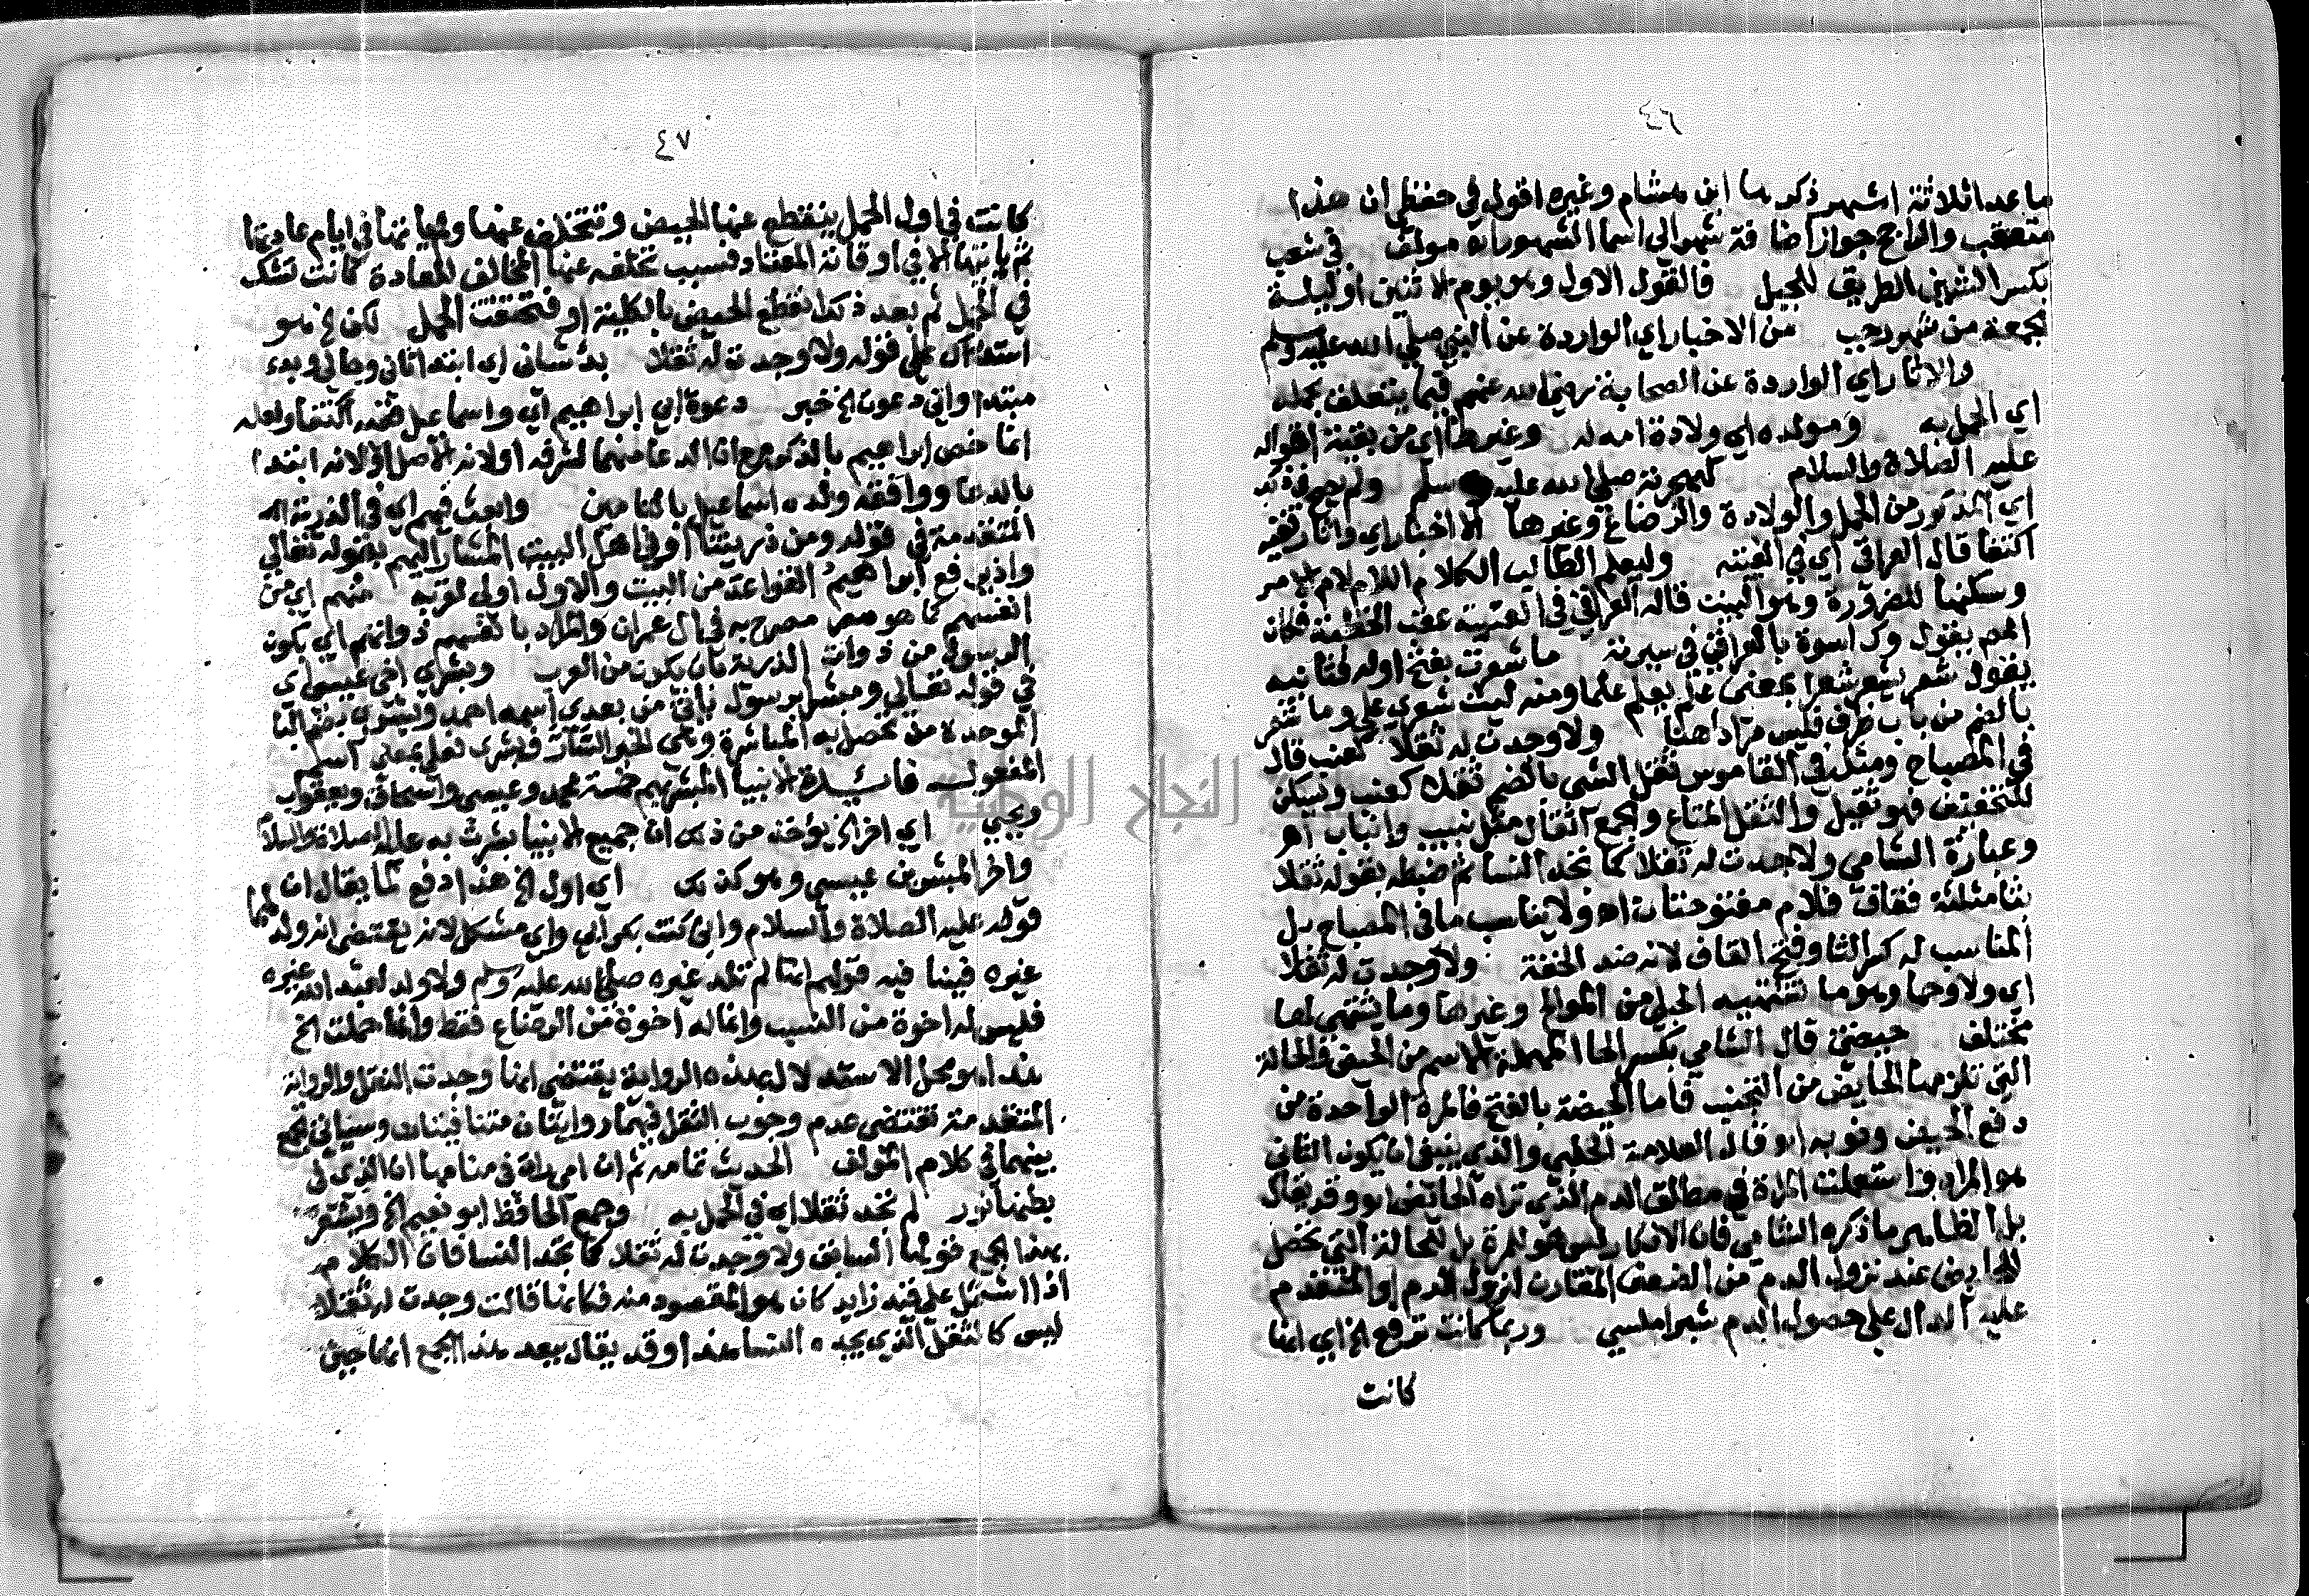 ٤٦
ما عدا ثلاثة اشهر ذكرها ابن هشام وغيره اقول في حفظي ان هذا
متعقب والراجح جواز اضافة شهر الى اسما الشهور اه مولف في شعب
بكسر الشين الطريق للجبل فالقول الاول وهو يوم الاثنين او ليلة
الجمعة من شهر رجب من الاخبار اي الواردة عن النبي صلى الله عليه وسلم
والاثار اي الواردة عن الصحابة رضي الله عنهم فيما يتعلق بحمله
اي الحمل به ومولده اي ولادة امه له وغيرها اي من بقية احواله
عليه الصلاة والسلام كهجرته صلى الله عليه وسلم ولم يصح في ذلك
اي المذكور من الحمل والولادة والرضاع وغيرها الا اخبار اي واثار ففيه
اكتفا قال العراقي اي في الفيته وليعلم الطالب الكلام اللام لام الامر
وسكنها للضرورة وهو البيت قاله العراقي في الفيته عقب الخطبة فكان
المص يقول وله اسوة بالعراقي في سيرته ما شعرت بفتح اوله وثانيه
يقول شعر يشعر شعرا بمعنى علم يعلم علما ومنه ليت شعري علمي وما شعر
بالضم من باب ظرف فليس مرادا هنا ولا وجدت له ثقلا كعنب قال
في المصباح ومثله في القاموس ثقل الشي بالضم ثقلا كعنب ويسكن
للتخفيف فهو ثقيل والثقل المتاع والجمع اثقال مثل سبب واسباب اه
وعبارة الشامي ولا وجدت له ثقلا كما تجد النسا ثم ضبطه بقوله ثقلا
بثا مثلثة فقاف فلام مفتوحتان اه ولا يناسب ما في المصباح بل
المناسب له كسر الثا وفتح القاف لانه ضد الخفة ولا وجدت له ثقلا
اي ولا وحما وهو ما تشتهيه الحبلى من الموالح وغيرها وما يشتهى لها
مختلف حيضتي قال الشامي بكسر الحا المهملة الاسم من الحيض والحالة
التي تلزمها الحايض من التجنب فاما الحيضة بالفتح فالمرة الواحدة من
دفع الحيض ونوبه اه وقال العلامة الحلبي والذي ينبغي ان يكون الثاني
هو المراد واستعملت المرة في مطلق الدم الذي تراه الحائض اه وقد يقال
بل الظاهر ما ذكره الشامي فان الانكار ليس هو للمرة بل للحالة التي تحصل
للحايض عند نزول الدم من الضعف المقارن لنزول الدم او المتقدم
عليه الدال على حصول الدم شبراملسي وربما كانت ترفع الخ اي انها
كانت
٤٧
كانت في اول الحمل ينقطع عنها الحيض ويتخلف عنها ولم ياتها في ايام عادتها
ثم ياتيها الا في اوقاته المعتاد فبسبب تخلفه عنها المخالف للعادة كانت تشك
في الحمل ثم بعد ذلك انقطع الحيض بالكلية اي فتحققت الحمل لكن الخ هو
استدراك على قوله ولا وجدت له ثقلا بدء شاني اي ابتدا شاني وحالي وبدء
مبتدا واني دعوت الخ خبر دعوة ابي ابراهيم اي واسماعيل ففيه اكتفا ولعله
انما خص ابراهيم بالذكر مع ان الدعا منهما لشرفه او لانه الاصل او لانه ابتدا
بالدعا ووافقه ولده اسماعيل بالتامين وابعث فيهم اي في الذرية اه
المتقدمة في قوله ومن ذريتنا او في اهل البيت المشار اليهم بقوله تعالى
واذ يرفع ابراهيم القواعد من البيت والاول اولى لقربه منهم اي من
انفسهم كما هو مصرح به في ال عمران والمراد بانفسهم ذواتهم اي يكون
الرسول من ذوات الذرية بان يكون من العرب وبشراي اخي عيسى اي
في قوله تعالى ومبشرا برسول ياتي من بعدي اسمه احمد وبشرى بضم البا
الموحدة من تحصل به المباشرة وهي الخبر السار فبشرى فعلى بمعنى اسم
المفعول فائدة الانبيا المبشر بهم خمسة محمد وعيسى واسحاق ويعقوب
ويحيى اي اخر الخ يؤخذ من ذلك ان جميع الانبيا بشرت به عليه الصلاة والسلام
واخر المبشرين عيسى وهو كذلك اي اول الخ هذا دفع لما يقال ان
قوله عليه الصلاة والسلام واني كنت بكر ابي وامي مشكل لانه يقتضي انه ولد لهما
غيره فينا فيه قولهم انها لم تلد غيره صلى الله عليه وسلم ولا ولد لعبد الله غيره
فليس له اخوة من النسب وانما له اخوة من الرضاع فقط وانها حملت الخ
هذا هو محل الاستدلال لهذه الرواية يقتضي انها وجدت الثقل والرواية
المتقدمة تقتضي عدم وجوب الثقل فهما روايتان متنافيتان وسياتي الجمع
بينهما في كلام المولف الحديث تمامه ثم ان امي رات في منامها ان الذي في
بطنها نور لم تجد ثقلا اي في الحمل به وجمع الحافظ ابو نعيم الخ ويشعر
بهذا الجمع قولها السابق ولا وجدت له ثقلا كما تجد النسا فان الكلام
اذا اشتمل على قيد زايد كان هو المقصود منه فكانها قالت وجدت له ثقلا
ليس كالثقل الذي يجده النسا هذا وقد يقال بعد هذا الجمع انها حين